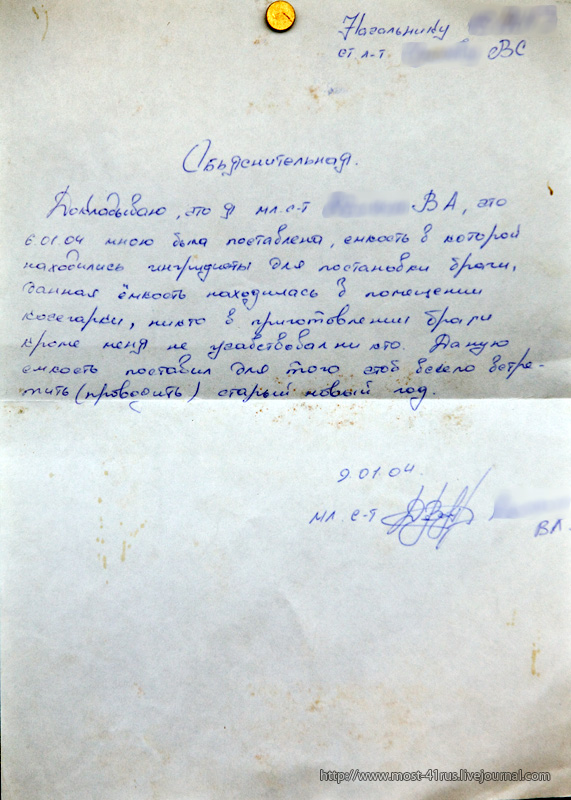 Начальнику
ст. л-т ВС
Объяснительная.
Докладываю, что я мл. с-т ВА, что
6.01.04 мною была поставлена, емкость в которой
находились ингридиеты для постановки браги,
данная ёмкость находилась в помещении
косегарки, никто в приготовлении браги
кроме меня не усавствовал ни кто. Даную
емкость поставил для того чтоб весело встре-
тить (проводить) старый новый год.
9.01.04.
мл. с-т
ВА.
http://www.most-41rus.livejournal.com